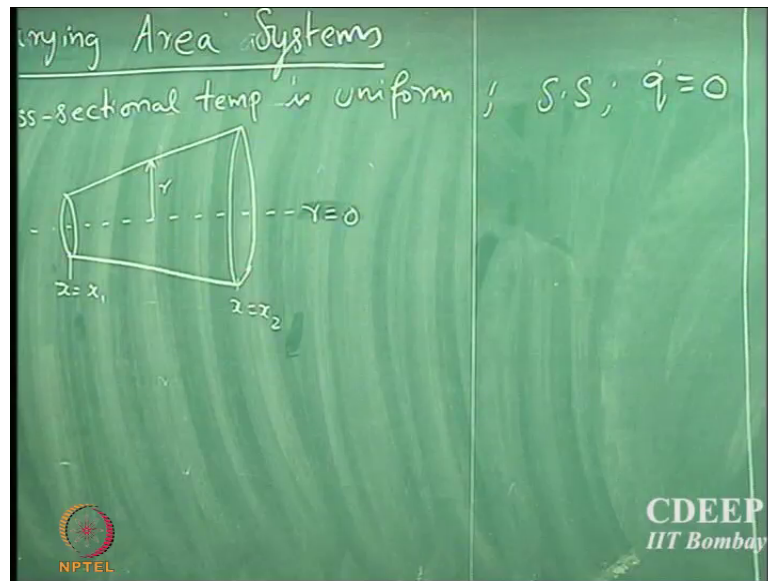 rying Area Systems
ss-sectional temp is uniform ; S.S; q̇ = 0
r
r=0
x=x₁
x=x₂
CDEEP
IIT Bombay
NPTEL